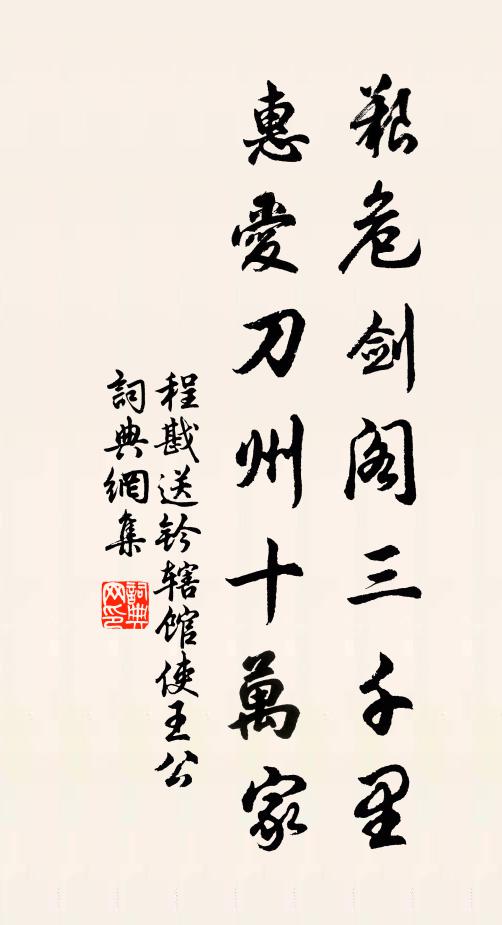 艱危劍阁三千里
惠愛刀州十萬家
程戡送鈐辖馆使王公
詞典網集
詞典网印